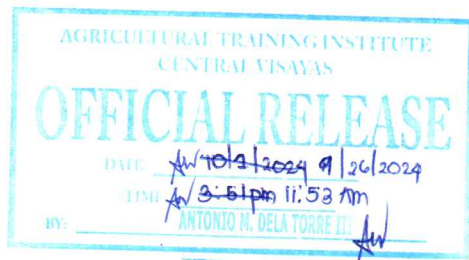 AGRICULTURAL TRAINING INSTITUTE
CENTRAL VISAYAS
OFFICIAL RELEASE
DATE 10/1/2024 9/26/2024
TIME 3:51pm 11:53 AM
BY: ANTONIO M. DELA TORRE III